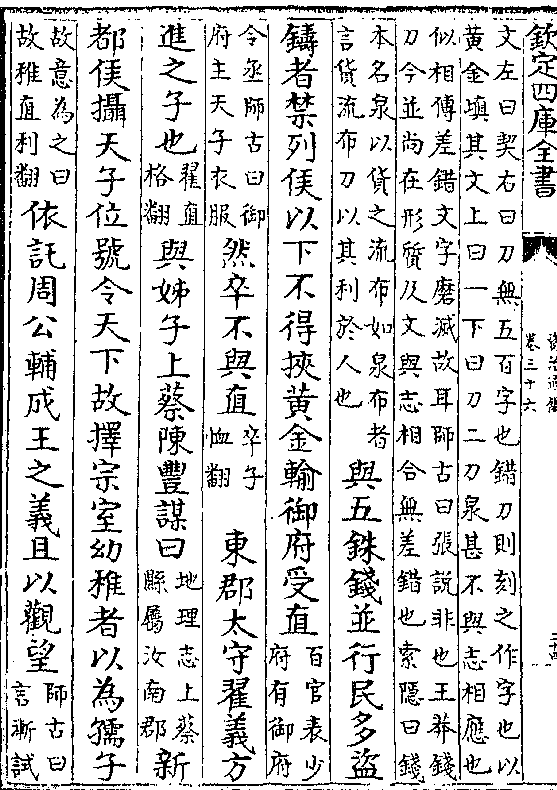 欽定四庫全書
資治通鑑
卷三十六
文左曰契右曰刀無五百字也錯刀則刻之作字也以
黄金填其文上曰一下曰刀二刀泉甚不與志相應也
似相傳差錯文字磨滅故耳師古曰張說非也王莽錢
刀今並尚在形質及文與志相合無差錯也索隱曰錢
本名泉以貨之流布如泉布者
言貨流布刀以其利於人也
與五銖錢並行民多盜
鑄者禁列侯以下不得挾黄金輸御府受直
百官表少
府有御府
令丞師古曰御
府主天子衣服
然卒不與直
卒子
恤翻
東郡太守翟義方
進之子也
翟直
格翻
與姊子上蔡陳豐謀曰
地理志上蔡
縣屬汝南郡
新
都侯攝天子位號令天下故擇宗室幼稚者以為孺子
故意為之曰
故稚直利翻
依託周公輔成王之義且以觀望
師古曰
言漸試